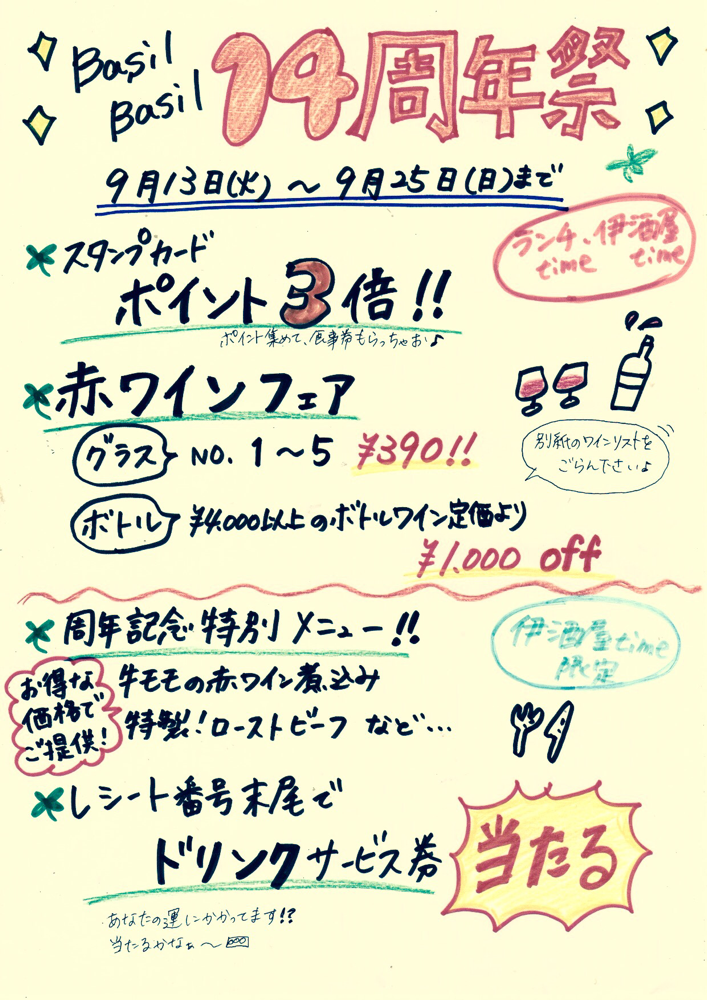 Basil
Basil
14周年祭
9月13日(火) ～ 9月25日(日)まで
ランチ、伊酒屋
time time
スタンプカード
ポイント3倍!!
ポイント集めて、食事券もらっちゃお♪
赤ワインフェア
グラス NO. 1～5 ¥390!!
別紙のワインリストを
ごらん下さい♪
ボトル ¥4.000以上のボトルワイン定価より
¥1.000 off
周年記念特別メニュー!!
伊酒屋time
限定
お得な
価格で
ご提供!
牛モモの赤ワイン煮込み
特製!ローストビーフ など…
レシート番号末尾で
ドリンクサービス券
当たる
あなたの運にかかってます!?
当たるかなぁ～